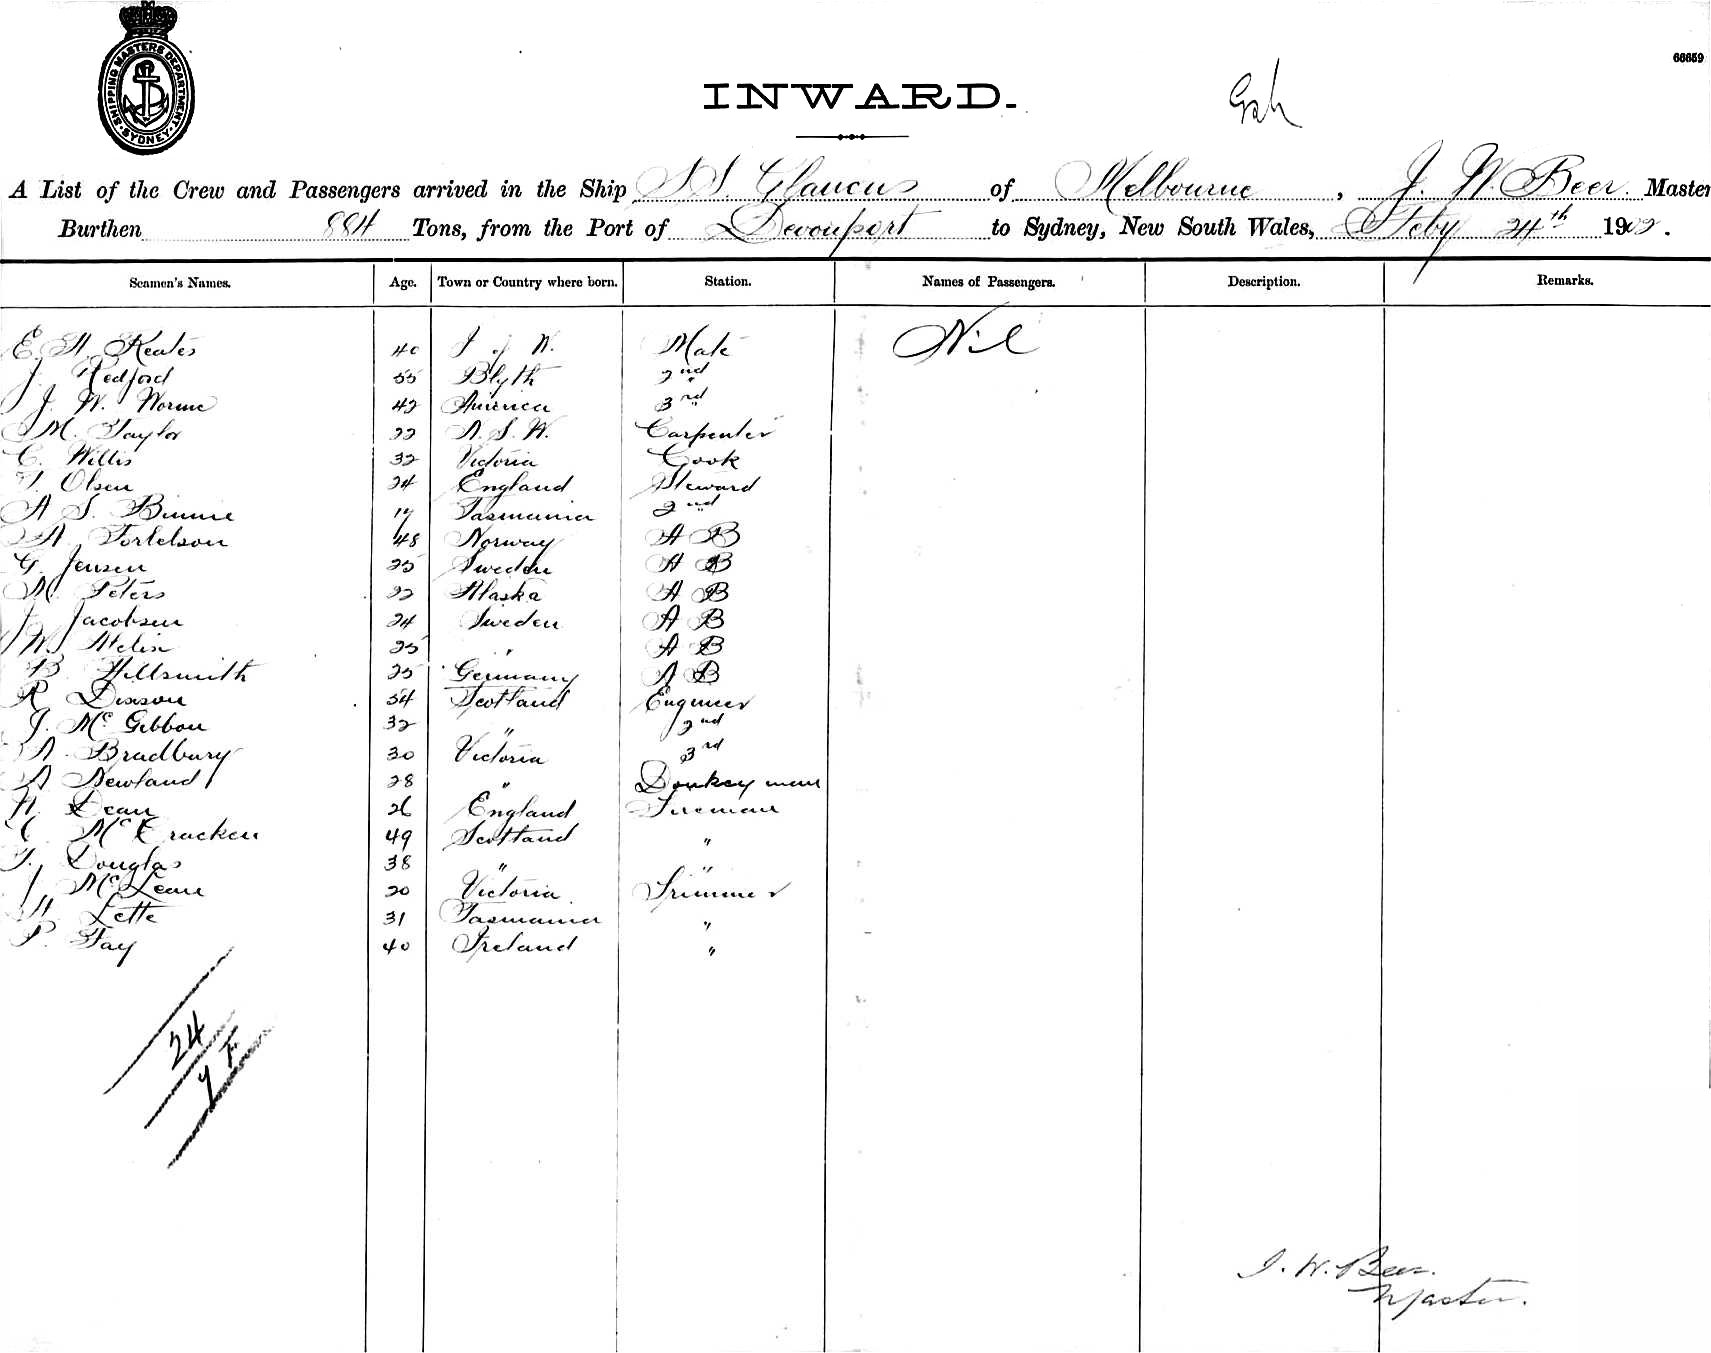 SHIPPING MASTERS DEPARTMENT · SYDNEY ·
66659
INWARD.
A List of the Crew and Passengers arrived in the Ship S.S. Glaucus of Melbourne, J. W. Beer. Master
Burthen 884 Tons, from the Port of Devonport to Sydney, New South Wales, Feby 24th 1902.
Seamen's Names. Age. Town or Country where born. Station. Names of Passengers. Description. Remarks.
Keates 40 Mate Nil
J. Redford 55 Blyth 2nd
J. W. Worme 42 America 3rd
M. Taylor 22 N. S. W. Carpenter
C. Willis 32 Victoria Cook
Olsen 24 England Steward
A S. Binnie 17 Tasmania 2nd
A. Tortelson 48 Norway A B
G. Jensen 25 Sweden A B
M. Peters 22 Alaska A B
J. Jacobsen 24 Sweden A B
W. Melin 25 " A B
B. Hillsmith 25 Germany A B
R Dixson 54 Scotland Engineer
J. McGibbon 32 " 2nd
A. Bradbury 30 Victoria 3rd
A Newland 28 " Donkeyman
H. Dean 26 England Fireman
C McCracken 49 Scotland "
T. Douglas 38 " "
J McLean 20 Victoria Trimmer
Lette 31 Tasmania "
P. Fay 40 Ireland "
24
J. W. Beer.
Master.